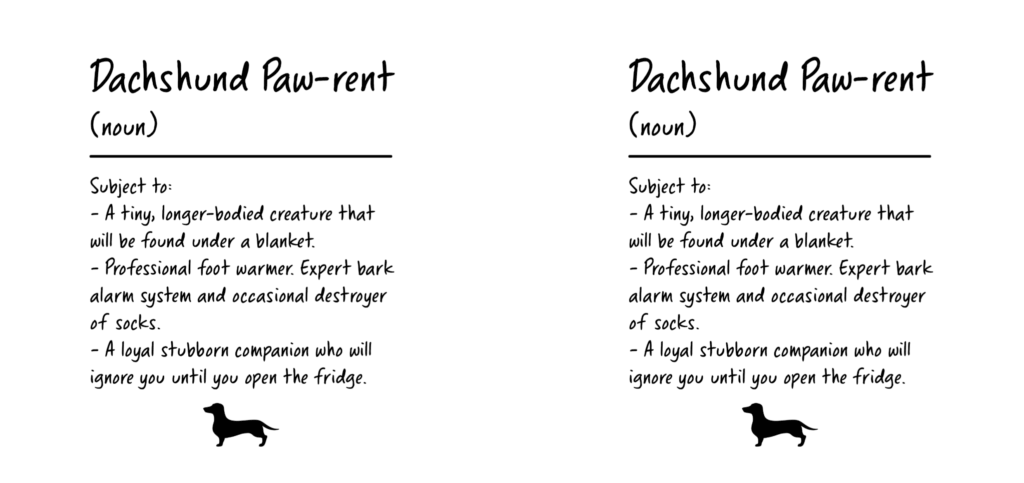 Dachshund Paw-rent
(noun)
Subject to:
- A tiny, longer-bodied creature that
will be found under a blanket.
- Professional foot warmer. Expert bark
alarm system and occasional destroyer
of socks.
- A loyal stubborn companion who will
ignore you until you open the fridge.
Dachshund Paw-rent
(noun)
Subject to:
- A tiny, longer-bodied creature that
will be found under a blanket.
- Professional foot warmer. Expert bark
alarm system and occasional destroyer
of socks.
- A loyal stubborn companion who will
ignore you until you open the fridge.